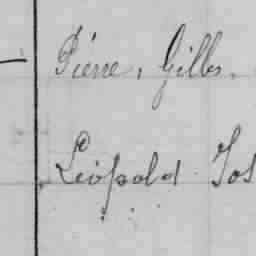 Pierre, Gilles.
Léopold Jos